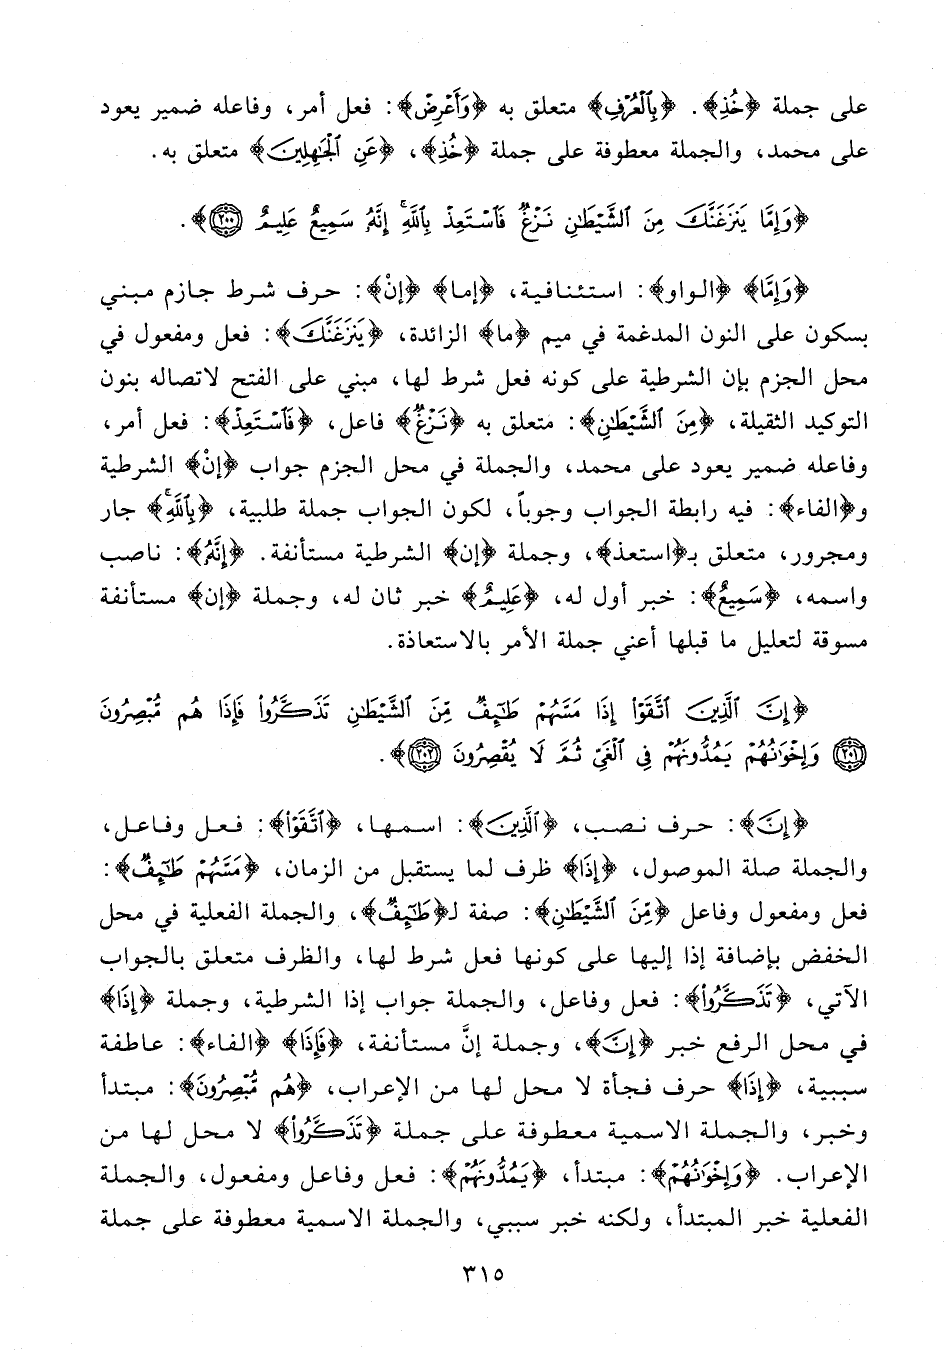 على جملة ﴿خُذِ﴾. ﴿بِٱلۡعُرۡفِ﴾ متعلق به ﴿وَأَعۡرِضۡ﴾: فعل أمر، وفاعله ضمير يعود
على محمد، والجملة معطوفة على جملة ﴿خُذِ﴾، ﴿عَنِ ٱلۡجَٰهِلِينَ﴾ متعلق به.
﴿وَإِمَّا يَنزَغَنَّكَ مِنَ ٱلشَّيۡطَٰنِ نَزۡغٞ فَٱسۡتَعِذۡ بِٱللَّهِۚ إِنَّهُۥ سَمِيعٌ عَلِيمٌ ٢٠٠﴾.
﴿وَإِمَّا﴾ ﴿الواو﴾: استئنافية، ﴿إما﴾ ﴿إنْ﴾: حرف شرط جازم مبني
بسكون على النون المدغمة في ميم ﴿ما﴾ الزائدة، ﴿يَنزَغَنَّكَ﴾: فعل ومفعول في
محل الجزم بإن الشرطية على كونه فعل شرط لها، مبني على الفتح لاتصاله بنون
التوكيد الثقيلة، ﴿مِنَ ٱلشَّيۡطَٰنِ﴾: متعلق به ﴿نَزۡغٞ﴾ فاعل، ﴿فَٱسۡتَعِذۡ﴾: فعل أمر،
وفاعله ضمير يعود على محمد، والجملة في محل الجزم جواب ﴿إنْ﴾ الشرطية
و﴿الفاء﴾: فيه رابطة الجواب وجوباً، لكون الجواب جملة طلبية، ﴿بِٱللَّهِۚ﴾ جار
ومجرور، متعلق بـ﴿استعذ﴾، وجملة ﴿إن﴾ الشرطية مستأنفة. ﴿إِنَّهُۥ﴾: ناصب
واسمه، ﴿سَمِيعٌ﴾: خبر أول له، ﴿عَلِيمٌ﴾ خبر ثان له، وجملة ﴿إن﴾ مستأنفة
مسوقة لتعليل ما قبلها أعني جملة الأمر بالاستعاذة.
﴿إِنَّ ٱلَّذِينَ ٱتَّقَوۡاْ إِذَا مَسَّهُمۡ طَٰٓئِفٞ مِّنَ ٱلشَّيۡطَٰنِ تَذَكَّرُواْ فَإِذَا هُم مُّبۡصِرُونَ
٢٠١ وَإِخۡوَٰنُهُمۡ يَمُدُّونَهُمۡ فِي ٱلۡغَيِّ ثُمَّ لَا يُقۡصِرُونَ ٢٠٢﴾.
﴿إِنَّ﴾: حرف نصب، ﴿ٱلَّذِينَ﴾: اسمها، ﴿ٱتَّقَوۡاْ﴾: فعل وفاعل،
والجملة صلة الموصول، ﴿إِذَا﴾ ظرف لما يستقبل من الزمان، ﴿مَسَّهُمۡ طَٰٓئِفٞ﴾:
فعل ومفعول وفاعل ﴿مِّنَ ٱلشَّيۡطَٰنِ﴾: صفة لـ﴿طَٰٓئِفٞ﴾، والجملة الفعلية في محل
الخفض بإضافة إذا إليها على كونها فعل شرط لها، والظرف متعلق بالجواب
الآتي، ﴿تَذَكَّرُواْ﴾: فعل وفاعل، والجملة جواب إذا الشرطية، وجملة ﴿إِذَا﴾
في محل الرفع خبر ﴿إِنَّ﴾، وجملة إنَّ مستأنفة، ﴿فَإِذَا﴾ ﴿الفاء﴾: عاطفة
سببية، ﴿إِذَا﴾ حرف فجأة لا محل لها من الإعراب، ﴿هُم مُّبۡصِرُونَ﴾: مبتدأ
وخبر، والجملة الاسمية معطوفة على جملة ﴿تَذَكَّرُواْ﴾ لا محل لها من
الإعراب. ﴿وَإِخۡوَٰنُهُمۡ﴾: مبتدأ، ﴿يَمُدُّونَهُمۡ﴾: فعل وفاعل ومفعول، والجملة
الفعلية خبر المبتدأ، ولكنه خبر سببي، والجملة الاسمية معطوفة على جملة
٣١٥